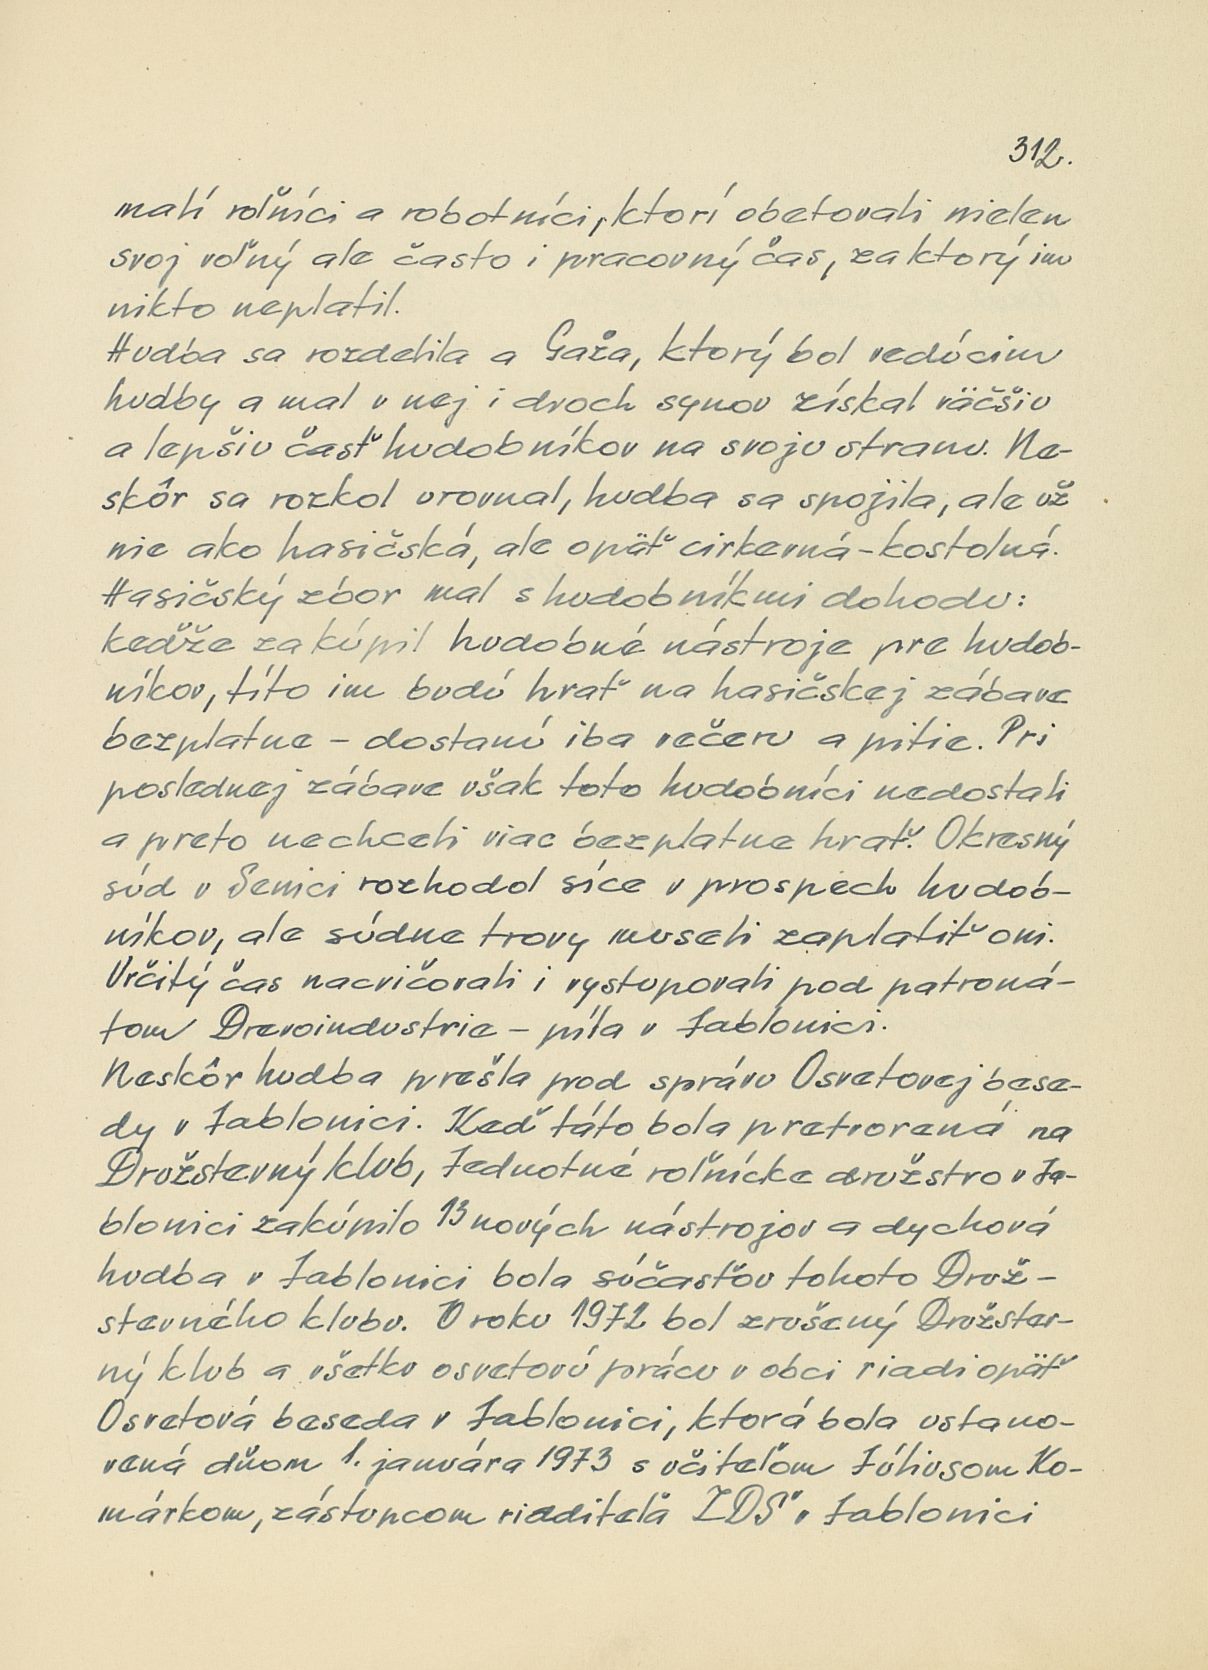 312.
malí roľníci a robotníci, ktorí obetovali nielen
svoj voľný ale často i pracovný čas, za ktorý im
nikto neplatil.
Hudba sa rozdelila a Gaža, ktorý bol vedúcim
hudby a mal v nej i dvoch synov získal väčšiu
a lepšiu časť hudobníkov na svoju stranu. Ne-
skôr sa rozkol urovnal, hudba sa spojila, ale už
nie ako hasičská, ale opäť cirkevná-kostolná.
Hasičský zbor mal s hudobníkmi dohodu:
keďže zakúpil hudobné nástroje pre hudob-
níkov, títo im budú hrať na hasičskej zábave
bezplatne - dostanú iba večeru a pitie. Pri
poslednej zábave však toto hudobníci nedostali
a preto nechceli viac bezplatne hrať. Okresný
súd v Senici rozhodol síce v prospech hudob-
níkov, ale súdne trovy museli zaplatiť oni.
Určitý čas nacvičovali i vystupovali pod patroná-
tom Drevoindustrie - píla v Jablonici.
Neskôr hudba prešla pod správu Osvetovej bese-
dy v Jablonici. Keď táto bola pretvorená na
Družstevný klub, Jednotné roľnícke družstvo v Ja-
blonici zakúpilo 13 nových nástrojov a dychová
hudba v Jablonici bola súčasťou tohoto Druž-
stevného klubu. V roku 1972 bol zrušený Družstev-
ný klub a všetku osvetovú prácu v obci riadi opäť
Osvetová beseda v Jablonici, ktorá bola ustano-
vená dňom 1. januára 1973 s učiteľom Júliusom Ko-
márkom, zástupcom riaditeľa ZDŠ v Jablonici